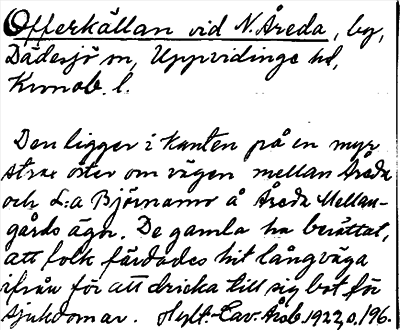 Offerkällan vid N. Åreda, by,
Dädesjö sn, Uppvidinge hd,
Kronob. l.
Den ligger i kanten på en myr
strax öster om vägen mellan Åreda
och L:a Björnamo å Åreda Mellan-
gårds ägor. De gamla ha berättat,
att folk färdades hit långväga
ifrån för att dricka till sig bot för
sjukdomar. Hylt.-Cav. Årsb. 1922, s. 196.